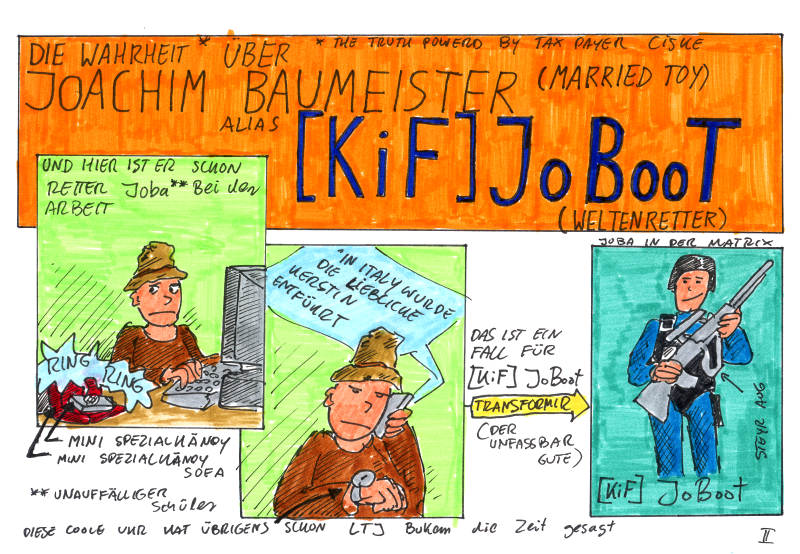 DIE WAHRHEIT * ÜBER
* THE TRUTH POWERD BY TAX PAYER CISKE
JOACHIM BAUMEISTER (MARRIED TOY)
ALIAS
[KiF] JoBooT
(WELTENRETTER)
UND HIER IST ER SCHON
RETTER Joba** Bei der
ARBEIT
RING
RING
MINI SPEZIALHÄNDY
MINI SPEZIALHÄNDY
SOFA
** UNAUFFÄLLIGER
Schüler
IN ITALY WURDE
DIE LIEBLICHE
KERSTIN
ENTFÜHRT
DAS IST EIN
FALL FÜR
[KiF] JoBoot
TRANSFORMIR
(DER
UNFASSBAR
GUTE)
JOBA IN DER MATRIX
STEYR AUG
[KiF] JoBoot
DIESE COOLE UHR HAT ÜBRIGENS SCHON LTJ Bukem die Zeit gesagt
II